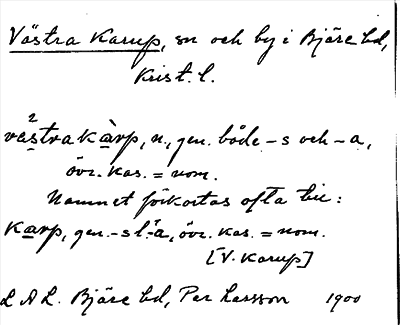 Västra Karup, sn och by i Bjäre hd,
Krist. l.
2
västra kàrp, n., gen. både -s och -a,
övr. kas. = nom.
Namnet förkortas ofta till:
karp, gen. -s l. -a, övr. kas. = nom.
[V. Karup]
L A L. Bjäre hd, Per Larsson 1900